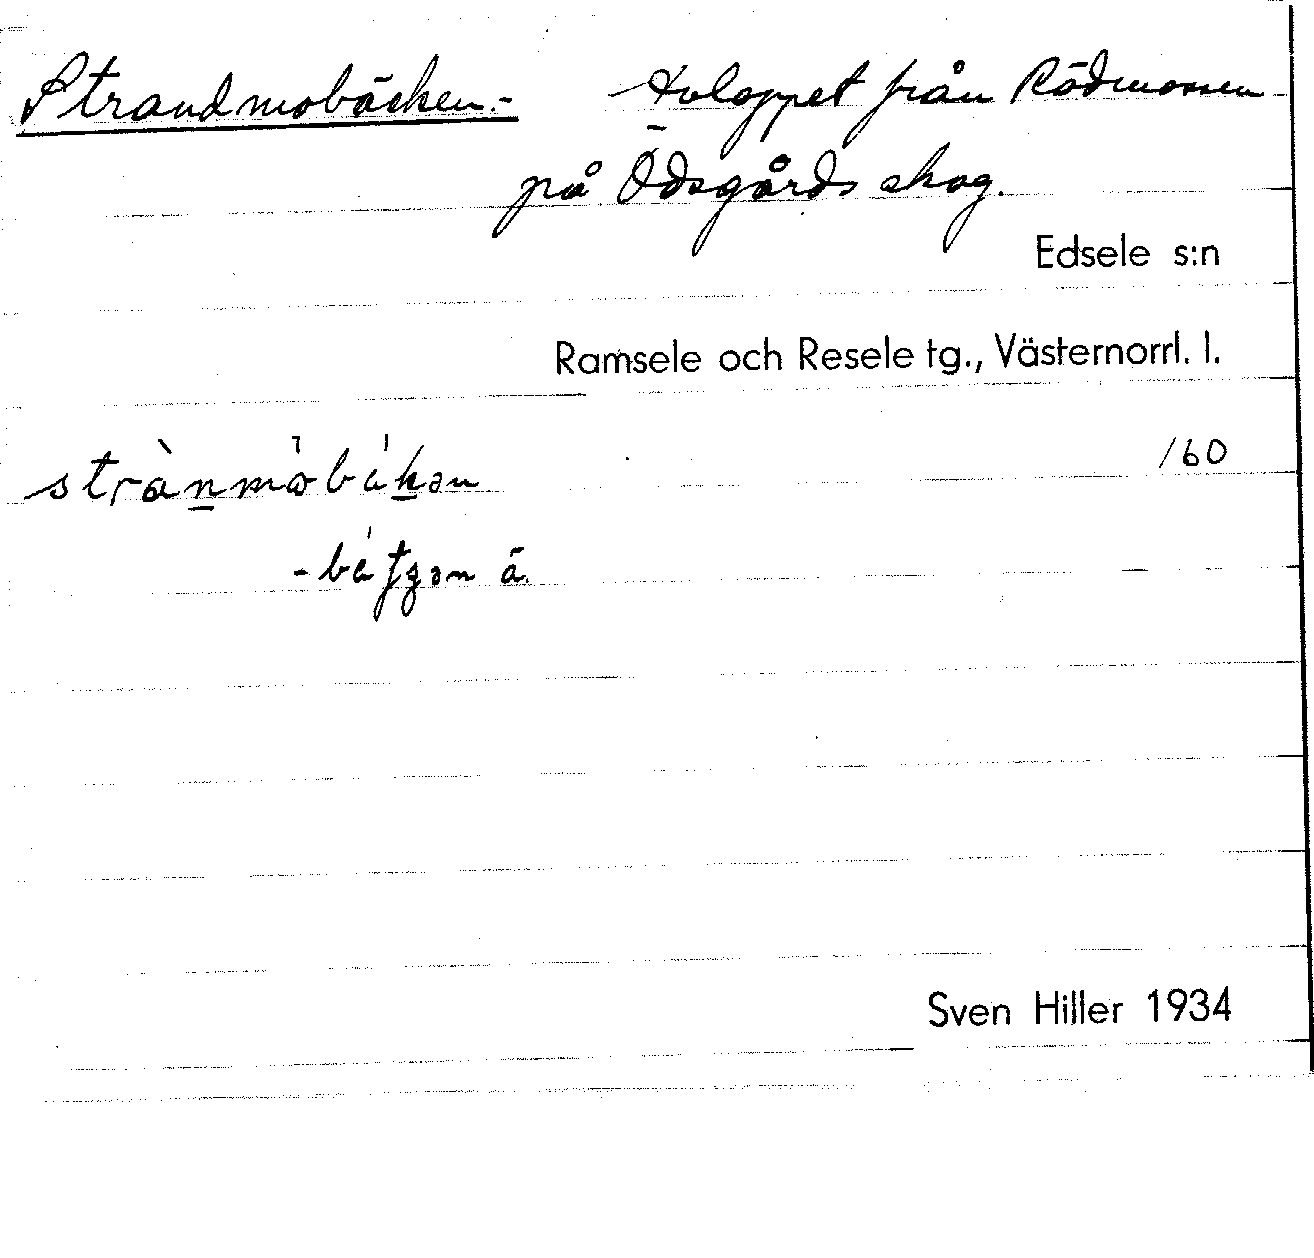 Strandmobäcken.- Avloppet från Rödmossen
på Ödsgårds skog.
Edsele s:n
Ramsele och Resele tg., Västernorrl. l.
160
- ä.
Sven Hiller 1934